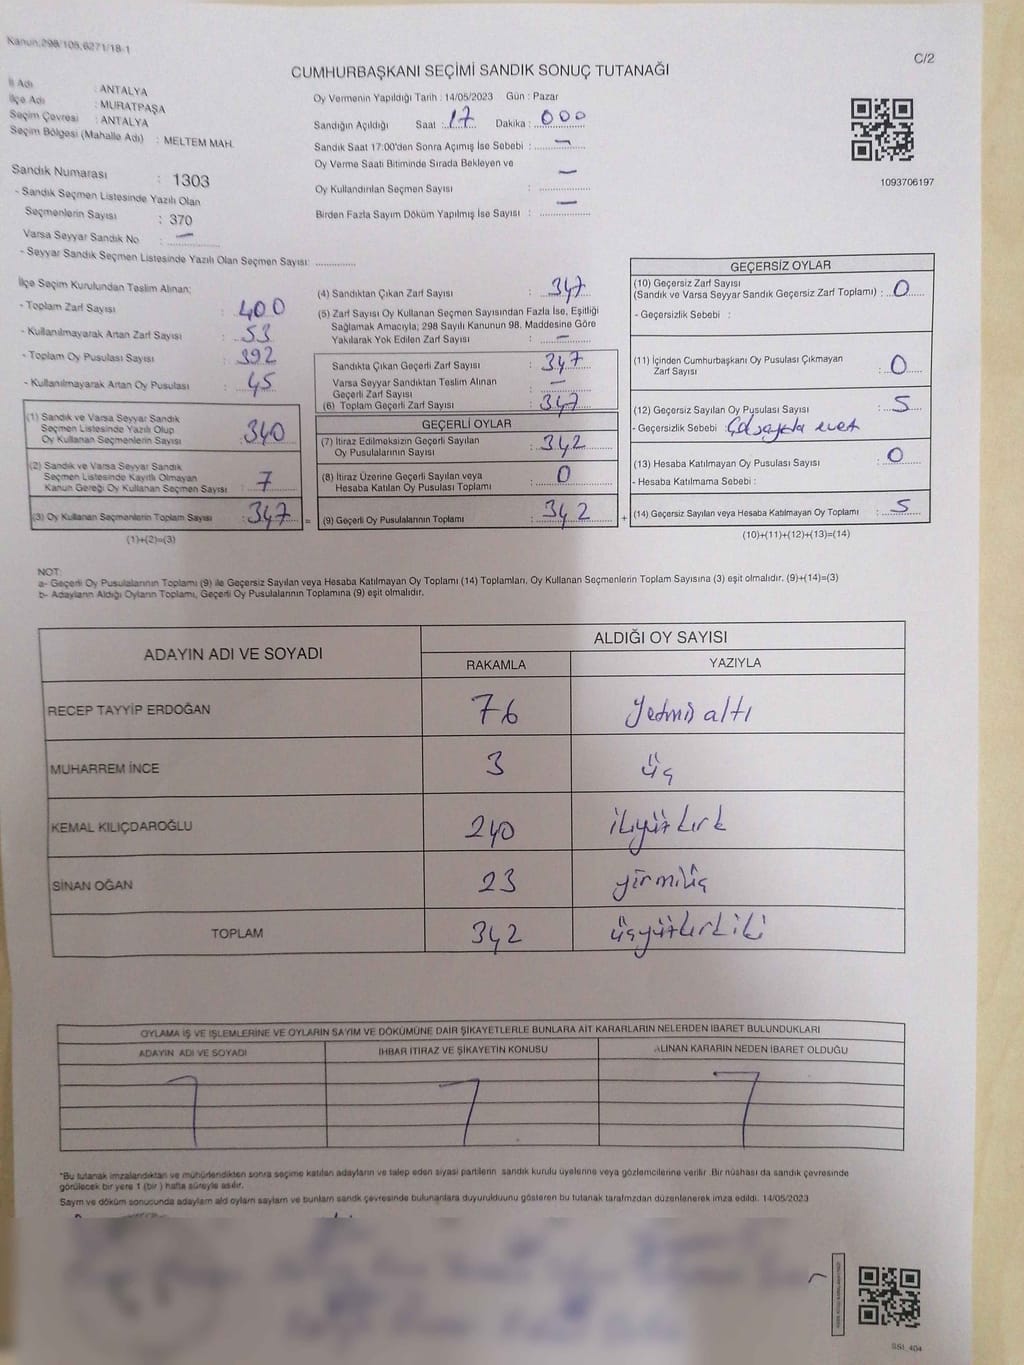 Kanun:298/105,6271/18-1
C/2
CUMHURBAŞKANI SEÇİMİ SANDIK SONUÇ TUTANAĞI
İl Adı : ANTALYA
İlçe Adı : MURATPAŞA
Seçim Çevresi : ANTALYA
Seçim Bölgesi (Mahalle Adı) : MELTEM MAH.
Sandık Numarası : 1303
- Sandık Seçmen Listesinde Yazılı Olan
Seçmenlerin Sayısı : 370
Varsa Seyyar Sandık No : —
- Seyyar Sandık Seçmen Listesinde Yazılı Olan Seçmen Sayısı: ............
Oy Vermenin Yapıldığı Tarih : 14/05/2023 Gün : Pazar
Sandığın Açıldığı Saat : 17 Dakika : 000
Sandık Saat 17:00'den Sonra Açımış İse Sebebi : —
Oy Verme Saati Bitiminde Sırada Bekleyen ve
Oy Kullandırılan Seçmen Sayısı : —
Birden Fazla Sayım Döküm Yapılmış İse Sayısı : —
1093706197
İlçe Seçim Kurulundan Teslim Alınan:
- Toplam Zarf Sayısı : 400
- Kullanılmayarak Artan Zarf Sayısı : 53
- Toplam Oy Pusulası Sayısı : 392
- Kullanılmayarak Artan Oy Pusulası : 45
(1) Sandık ve Varsa Seyyar Sandık
Seçmen Listesinde Yazılı Olup
Oy Kullanan Seçmenlerin Sayısı : 340
(2) Sandık ve Varsa Seyyar Sandık
Seçmen Listesinde Kayıtlı Olmayan
Kanun Gereği Oy Kullanan Seçmen Sayısı : 7
(3) Oy Kullanan Seçmenlerin Toplam Sayısı : 347 =
(1)+(2)=(3)
(4) Sandıktan Çıkan Zarf Sayısı : 347
(5) Zarf Sayısı Oy Kullanan Seçmen Sayısından Fazla İse, Eşitliği
Sağlamak Amacıyla; 298 Sayılı Kanunun 98. Maddesine Göre
Yakılarak Yok Edilen Zarf Sayısı : —
Sandıkta Çıkan Geçerli Zarf Sayısı : 347
Varsa Seyyar Sandıktan Teslim Alınan
Geçerli Zarf Sayısı : —
(6) Toplam Geçerli Zarf Sayısı : 347
GEÇERLİ OYLAR
(7) İtiraz Edilmeksizin Geçerli Sayılan
Oy Pusulalarının Sayısı : 342
(8) İtiraz Üzerine Geçerli Sayılan veya
Hesaba Katılan Oy Pusulası Toplamı : 0
(9) Geçerli Oy Pusulalarının Toplamı : 342 +
GEÇERSİZ OYLAR
(10) Geçersiz Zarf Sayısı
(Sandık ve Varsa Seyyar Sandık Geçersiz Zarf Toplamı) : 0
- Geçersizlik Sebebi :
(11) İçinden Cumhurbaşkanı Oy Pusulası Çıkmayan
Zarf Sayısı : 0
(12) Geçersiz Sayılan Oy Pusulası Sayısı : 5
- Geçersizlik Sebebi : evet
(13) Hesaba Katılmayan Oy Pusulası Sayısı : 0
- Hesaba Katılmama Sebebi :
(14) Geçersiz Sayılan veya Hesaba Katılmayan Oy Toplamı : 5
(10)+(11)+(12)+(13)=(14)
NOT:
a- Geçerli Oy Pusulalarının Toplamı (9) ile Geçersiz Sayılan veya Hesaba Katılmayan Oy Toplamı (14) Toplamları, Oy Kullanan Seçmenlerin Toplam Sayısına (3) eşit olmalıdır. (9)+(14)=(3)
b- Adayların Aldığı Oyların Toplamı, Geçerli Oy Pusulalarının Toplamına (9) eşit olmalıdır.
ADAYIN ADI VE SOYADI ALDIĞI OY SAYISI
RAKAMLA YAZIYLA
RECEP TAYYİP ERDOĞAN 76 Yetmiş altı
MUHARREM İNCE 3 üç
KEMAL KILIÇDAROĞLU 240 ikiyüzkırk
SİNAN OĞAN 23 yirmiüç
TOPLAM 342 üçyüzkırkiki
OYLAMA İŞ VE İŞLEMLERİNE VE OYLARIN SAYIM VE DÖKÜMÜNE DAİR ŞİKAYETLERLE BUNLARA AİT KARARLARIN NELERDEN İBARET BULUNDUKLARI
ADAYIN ADI VE SOYADI İHBAR İTİRAZ VE ŞİKAYETİN KONUSU ALINAN KARARIN NEDEN İBARET OLDUĞU
*Bu tutanak imzalandıktan ve mühürlendikten sonra seçime katılan adayların ve talep eden siyasi partilerin sandık kurulu üyelerine veya gözlemcilerine verilir. Bir nüshası da sandık çevresinde
görülecek bir yere 1 (bir) hafta süreyle asılır.
Sayım ve döküm sonucunda adayların aldı oyların sayıları ve bunların sandık çevresinde bulunanlara duyurulduunu gösteren bu tutanak tarafımızdan düzenlenerek imza edildi. 14/05/2023
SSI_404